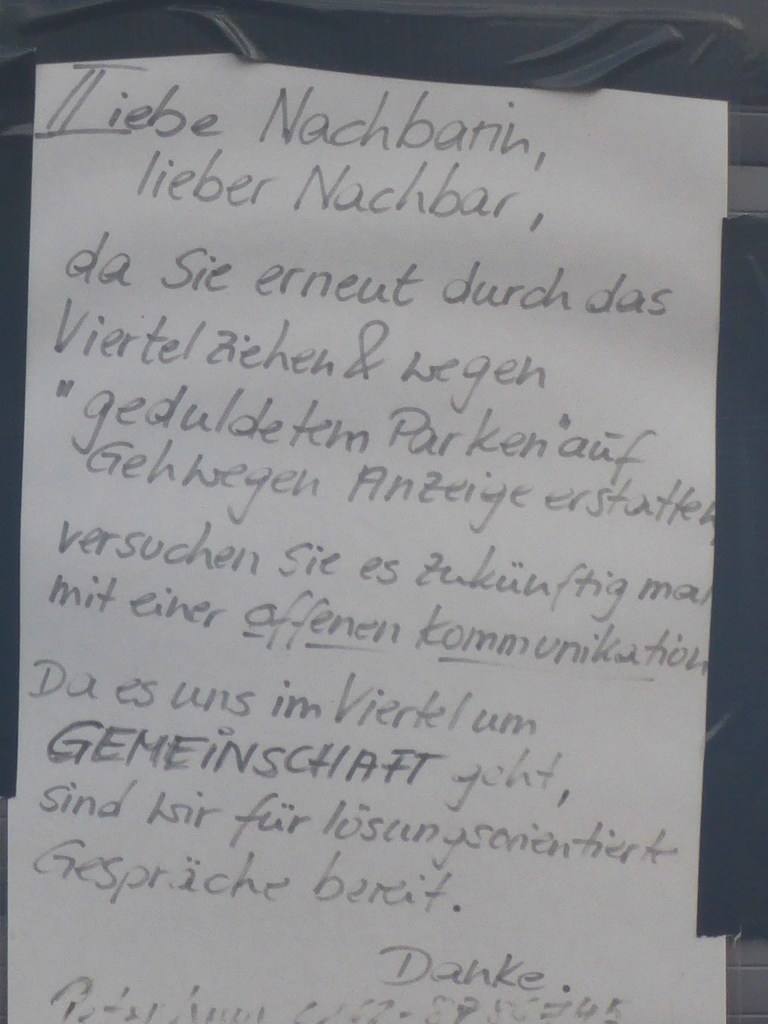 Liebe Nachbarin,
lieber Nachbar,
da Sie erneut durch das
Viertel ziehen & wegen
"geduldetem Parken" auf
Gehwegen Anzeige erstatten,
versuchen Sie es zukünftig mal
mit einer offenen Kommunikation
Da es uns im Viertel um
GEMEINSCHAFT geht,
sind wir für lösungsorientierte
Gespräche bereit.
Danke.